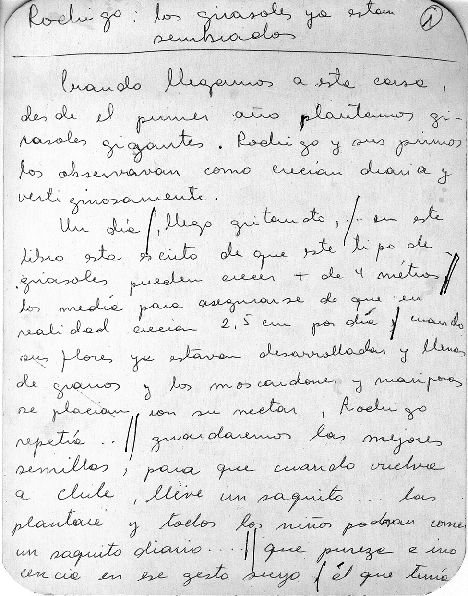 Rodrigo: los girasoles ya estan ①
sembrados
Cuando llegamos a esta casa,
desde el primer año plantamos gi-
rasoles gigantes. Rodrigo y sus primos
los observavan como crecían diaria y
vertiginosamente.
Un día /, llego gritando, /- en este
libro esta escrito de que este tipo de
girasoles pueden crecer + de 4 métros //
los media para asegurarse de que en
realidad crecian 2,5 cm por día / cuando
sus flores ya estavan desarrolladas y llenas
de granos y los moscardones y mariposas
se placian con su nectar, Rodrigo
repetía.. // guardaremos las mejores
semillas; para que cuando vuelva
a Chile, lleve un saquito... las
plantaré y todos los niños podran comer
un saquito diario....// que pureza e ino
cencia en ese gesto suyo / él que tenia